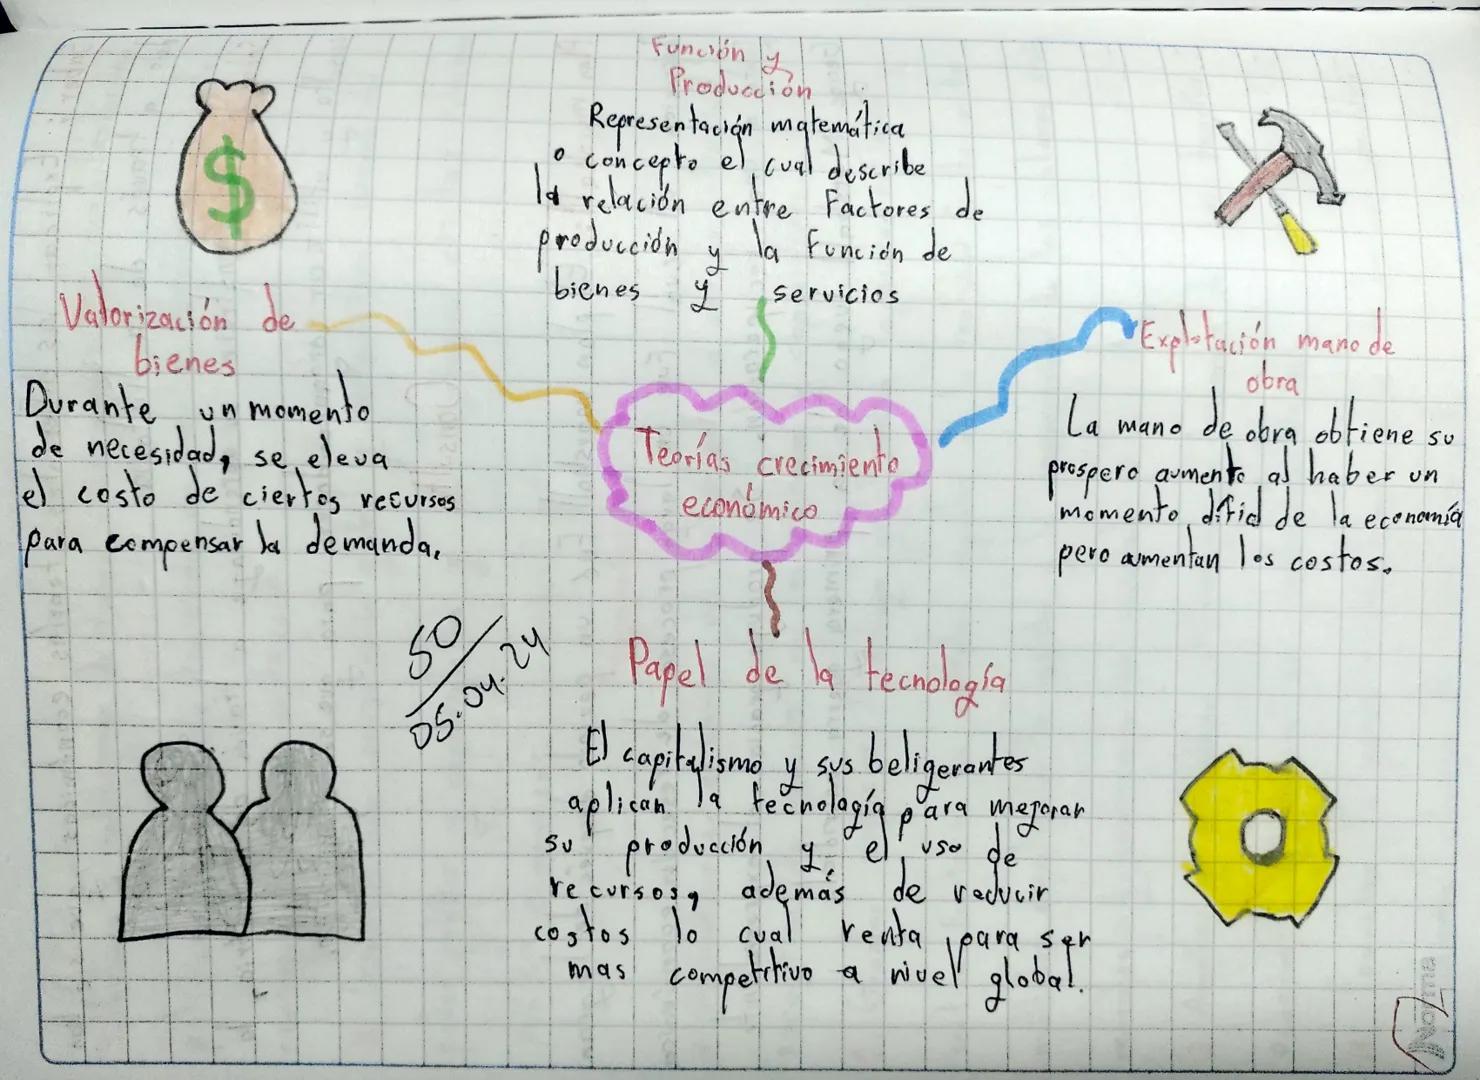 Función y
Producción
Representación matemática
o concepto el cual describe
la relación entre Factores de
producción y la Función de
bienes y servicios
Valorización de
bienes
Durante un momento
de necesidad, se eleva
el costo de ciertos recursos
para compensar la demanda.
Teorías crecimiento
económico
Explotación mano de
obra
La mano de obra obtiene su
prospero aumento al haber un
momento difícil de la economía
pero aumentan los costos.
50
05.04.24
Papel de la tecnología
El capitalismo y sus beligerantes
aplican la tecnología para mejorar
su producción y el uso de
recursos, además de reducir
costos lo cual renta para ser
mas competitivo a nivel global.
$